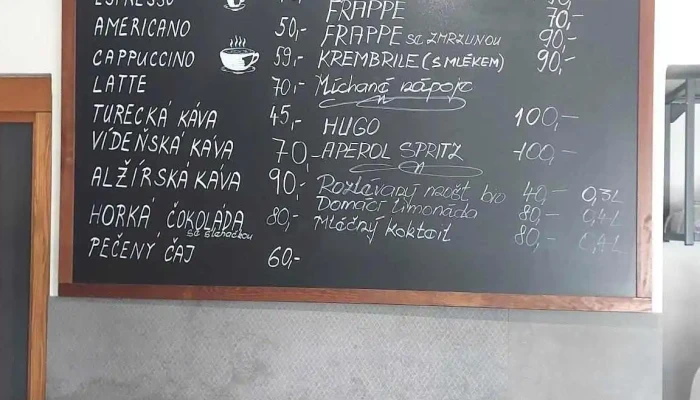 ESPRESSO
AMERICANO 50,-
CAPPUCCINO 59,-
LATTE 70,-
TURECKÁ KÁVA 45,-
VÍDEŇSKÁ KÁVA 70,-
ALŽÍRSKÁ KÁVA 90,-
HORKÁ ČOKOLÁDA 80,-
SE ŠLEHAČKOU
PEČENÝ ČAJ 60,-
FRAPPE 70,-
FRAPPE SE ZMRZLINOU 90,-
KREMBRILE (S MLÉKEM) 90,-
Míchané nápoje
HUGO 100,-
APEROL SPRITZ 100,-
mošt bio 40,- 0,3L
Domácí limonáda 80,- 0,4L
Mléčný koktail 80,- 0,4L